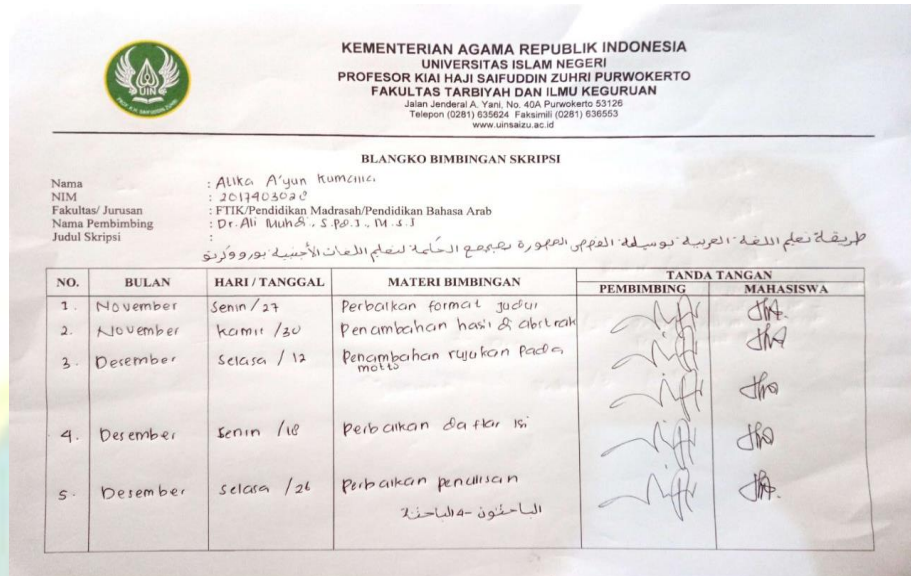 KEMENTERIAN AGAMA REPUBLIK INDONESIA
UNIVERSITAS ISLAM NEGERI
PROFESOR KIAI HAJI SAIFUDDIN ZUHRI PURWOKERTO
FAKULTAS TARBIYAH DAN ILMU KEGURUAN
Jalan Jenderal A. Yani, No. 40A Purwokerto 53126
Telepon (0281) 635624 Faksimili (0281) 636553
www.uinsaizu.ac.id
UIN
BLANGKO BIMBINGAN SKRIPSI
Nama : Alika A'yun
NIM :
Fakultas/ Jurusan : FTIK/Pendidikan Madrasah/Pendidikan Bahasa Arab
Nama Pembimbing : Dr. Ali Muhdi, S.Pd.I., M.S.I
Judul Skripsi :
طريقة تعليم اللغة العربية بوسيلة القصص المصورة بمجمع الحكمة لتعليم اللغات الأجنبية بورووكرتو
NO. BULAN HARI / TANGGAL MATERI BIMBINGAN TANDA TANGAN
PEMBIMBING MAHASISWA
1. November Senin / 27 Perbaikan format judul
2. November Kamis / 30 Penambahan hasil di abstrak
3. Desember Selasa / 12 Penambahan rujukan pada
motto
4. Desember Senin / 18 Perbaikan daftar isi
5. Desember Selasa / 26 Perbaikan penulisan
الباحثون - الباحثة